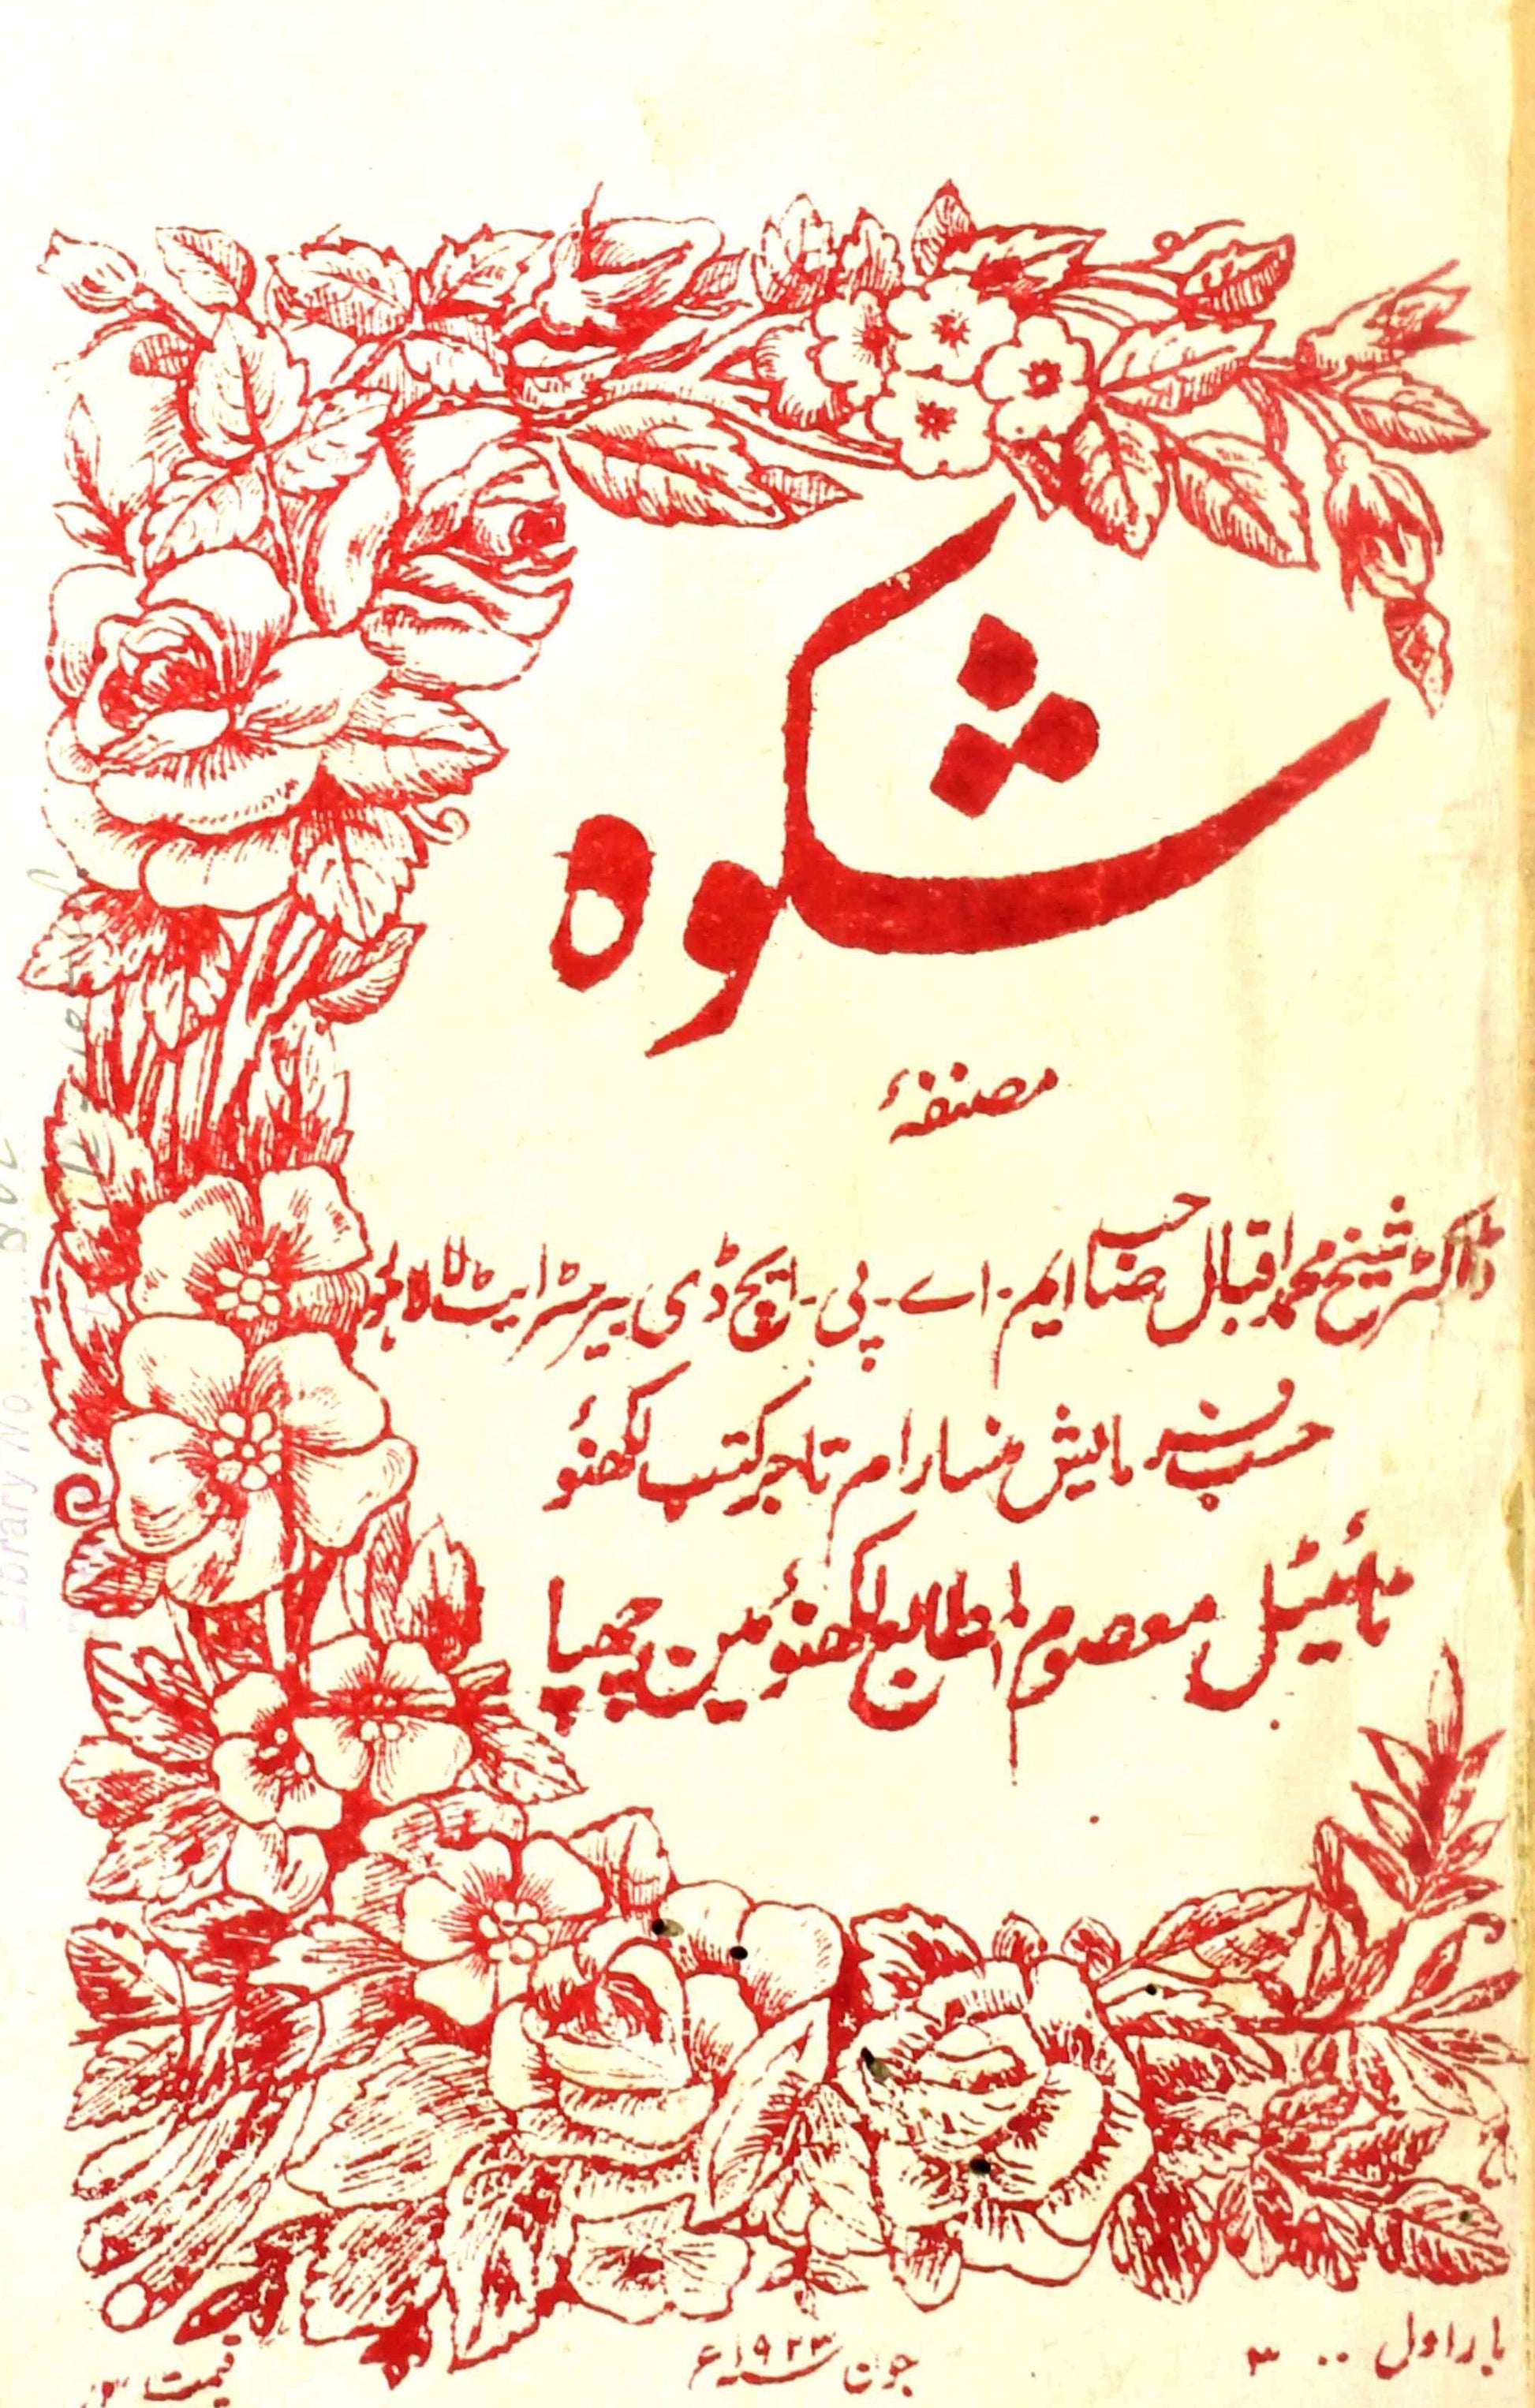 شکوہ
مصنفۂ
ڈاکٹر شیخ محمد اقبال صاحب ایم - اے - پی - ایچ ڈی بیرسٹر ایٹ لا لاہور
حسب فرمایش منسارام تاجر کتب لکھنؤ
ٹائیٹل معصوم المطابع لکھنؤ مین چھپا
بار اول ۳۰۰
جون ۱۹۲۳ء
قیمت
Library No